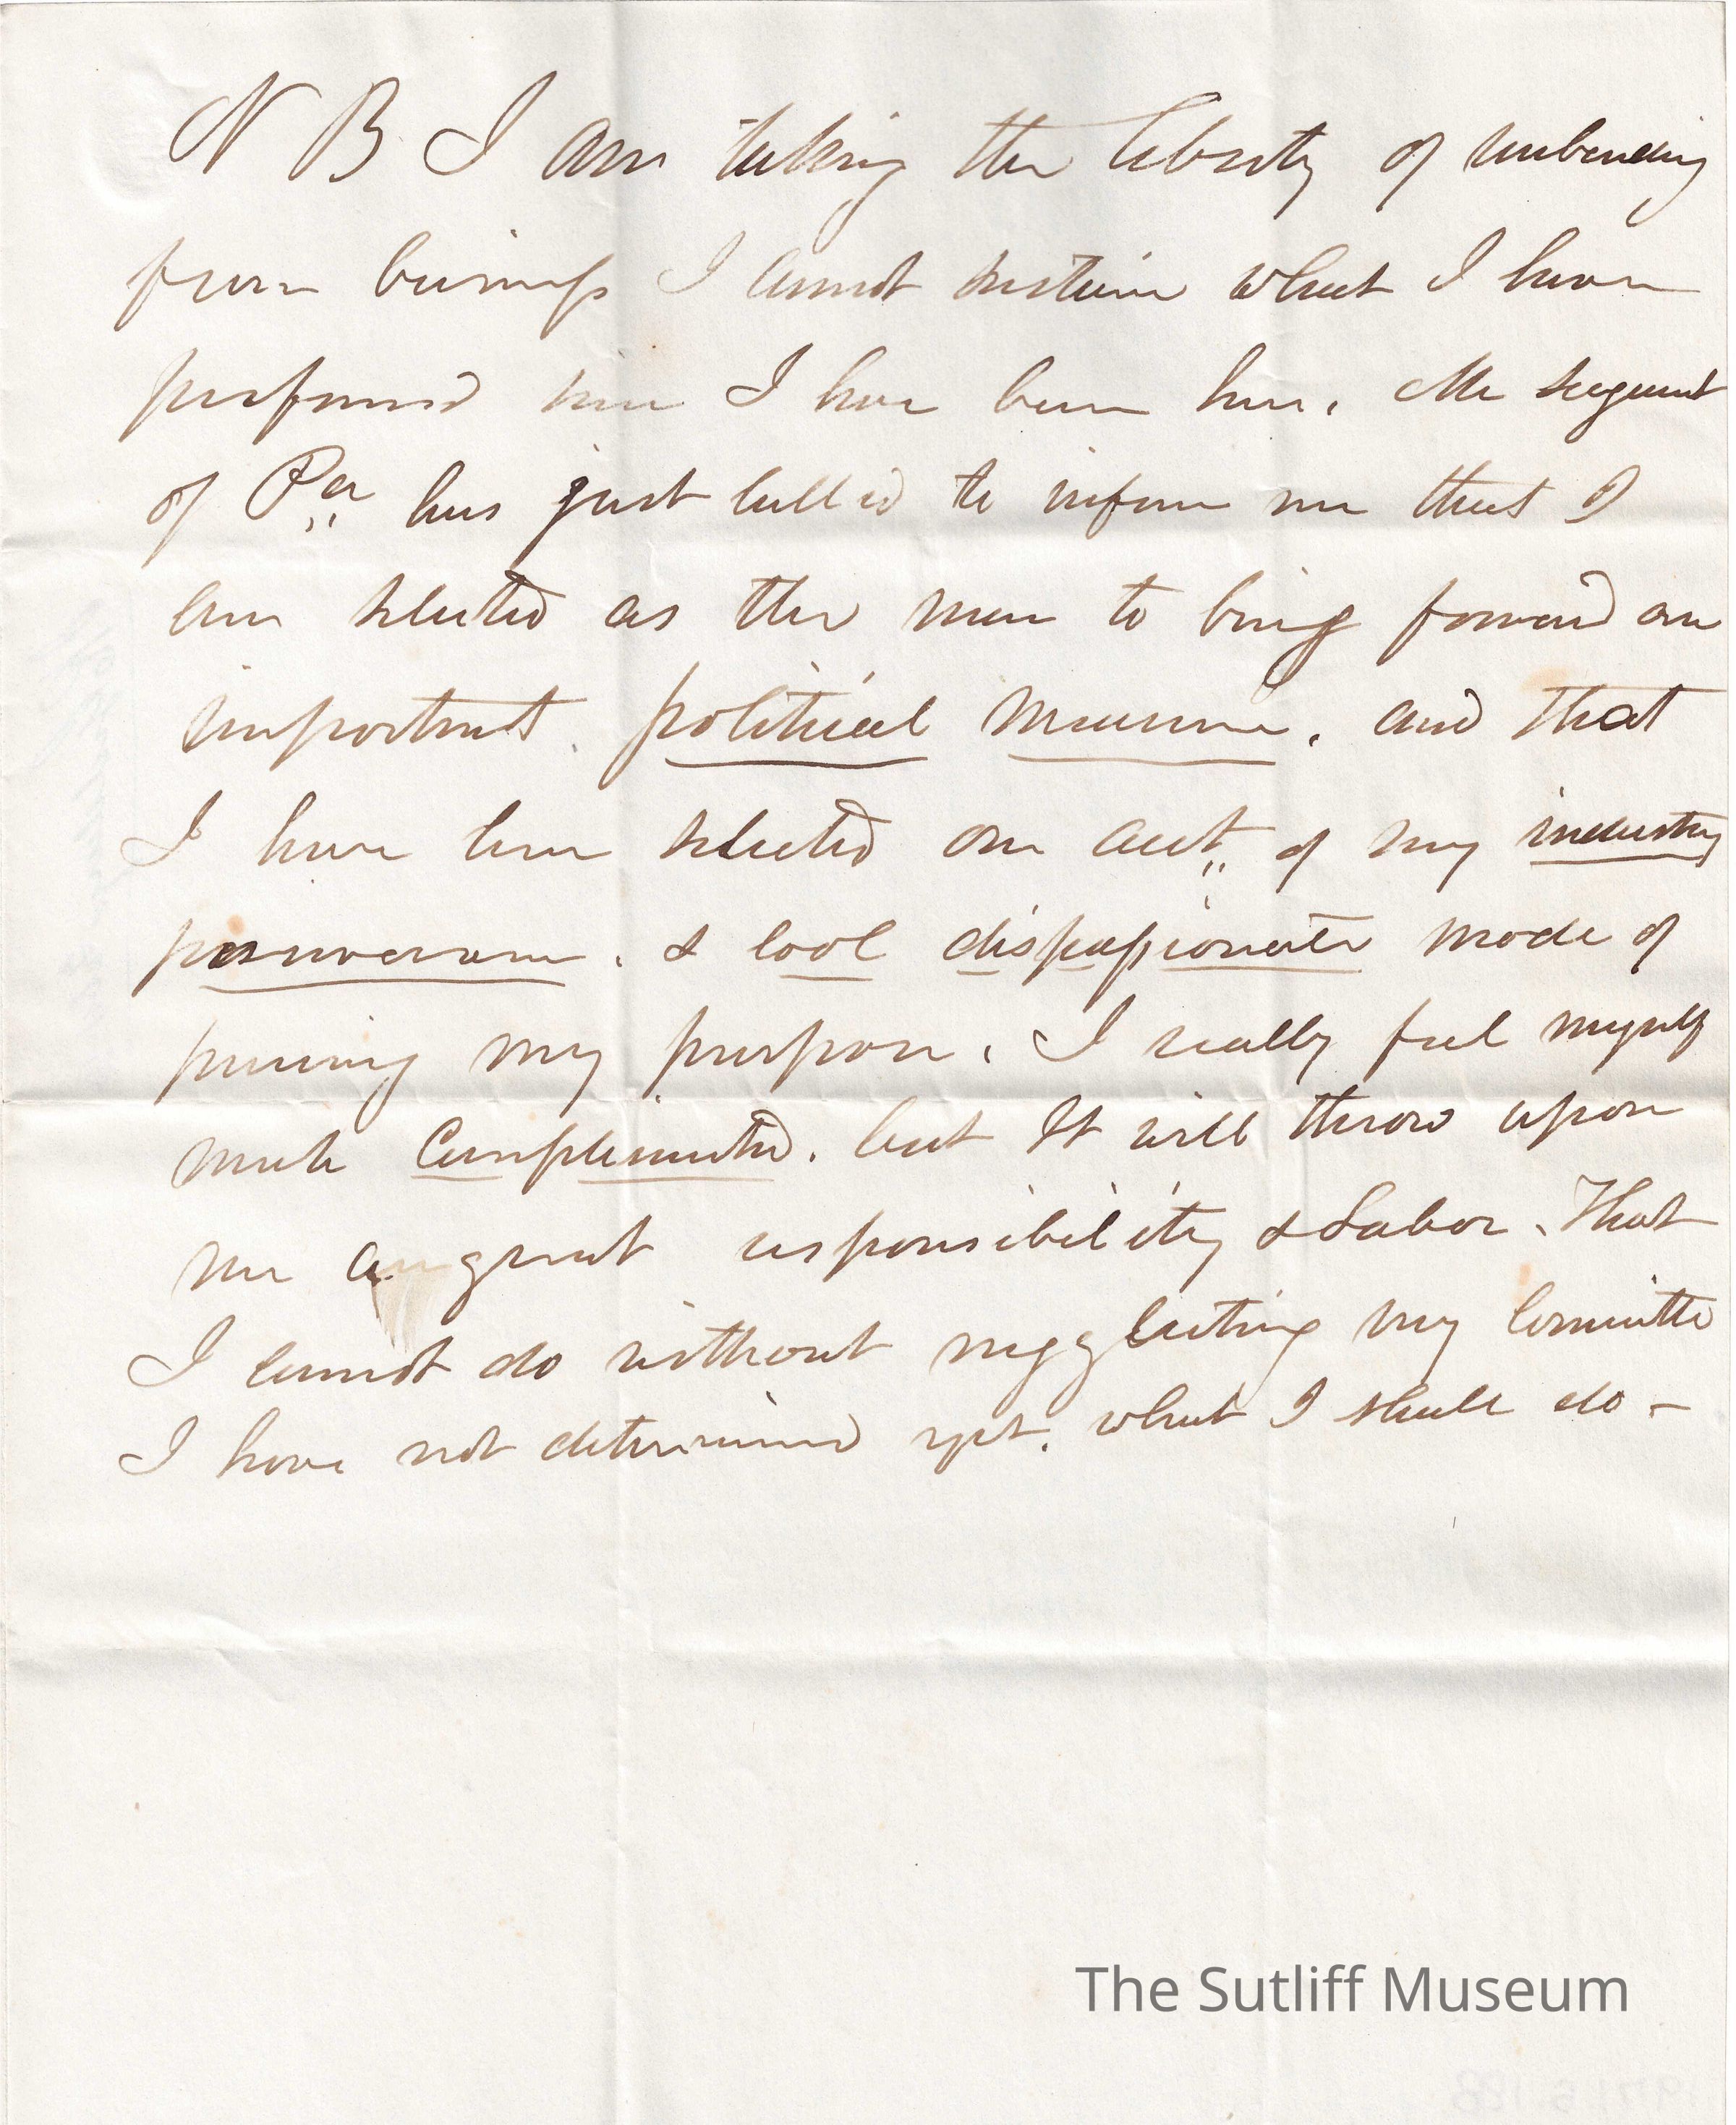 N B I am taking the liberty of unbending
from business I cannot sustain what I have
performed since I have been here. Mr Sergeant
of Pa has just called to inform me that I
am selected as the man to bring forward an
important political measure. and that
I have been selected on acct of my industry
perseverance. & cool dispassionate mode of
pursuing my purpose. I really feel myself
much Complimented. but It will throw upon
me a great responsibility & Labor. That
I cannot do without negglecting my Committe
I have not determined yet. what I shall do -
The Sutliff Museum